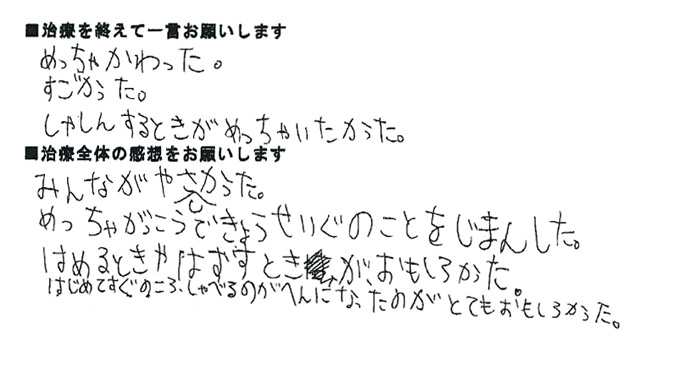 ■治療を終えて一言お願いします
めっちゃかわった。
すごかった。
しゃしんするときがめっちゃいたかった。
■治療全体の感想をお願いします
みんながやさしかった。
めっちゃがっこうできょうせいぐのことをじまんした。
はめるときやはずすときが、おもしろかった。
はじめてすぐのころ、しゃべるのがへんになったのがとてもおもしろかった。